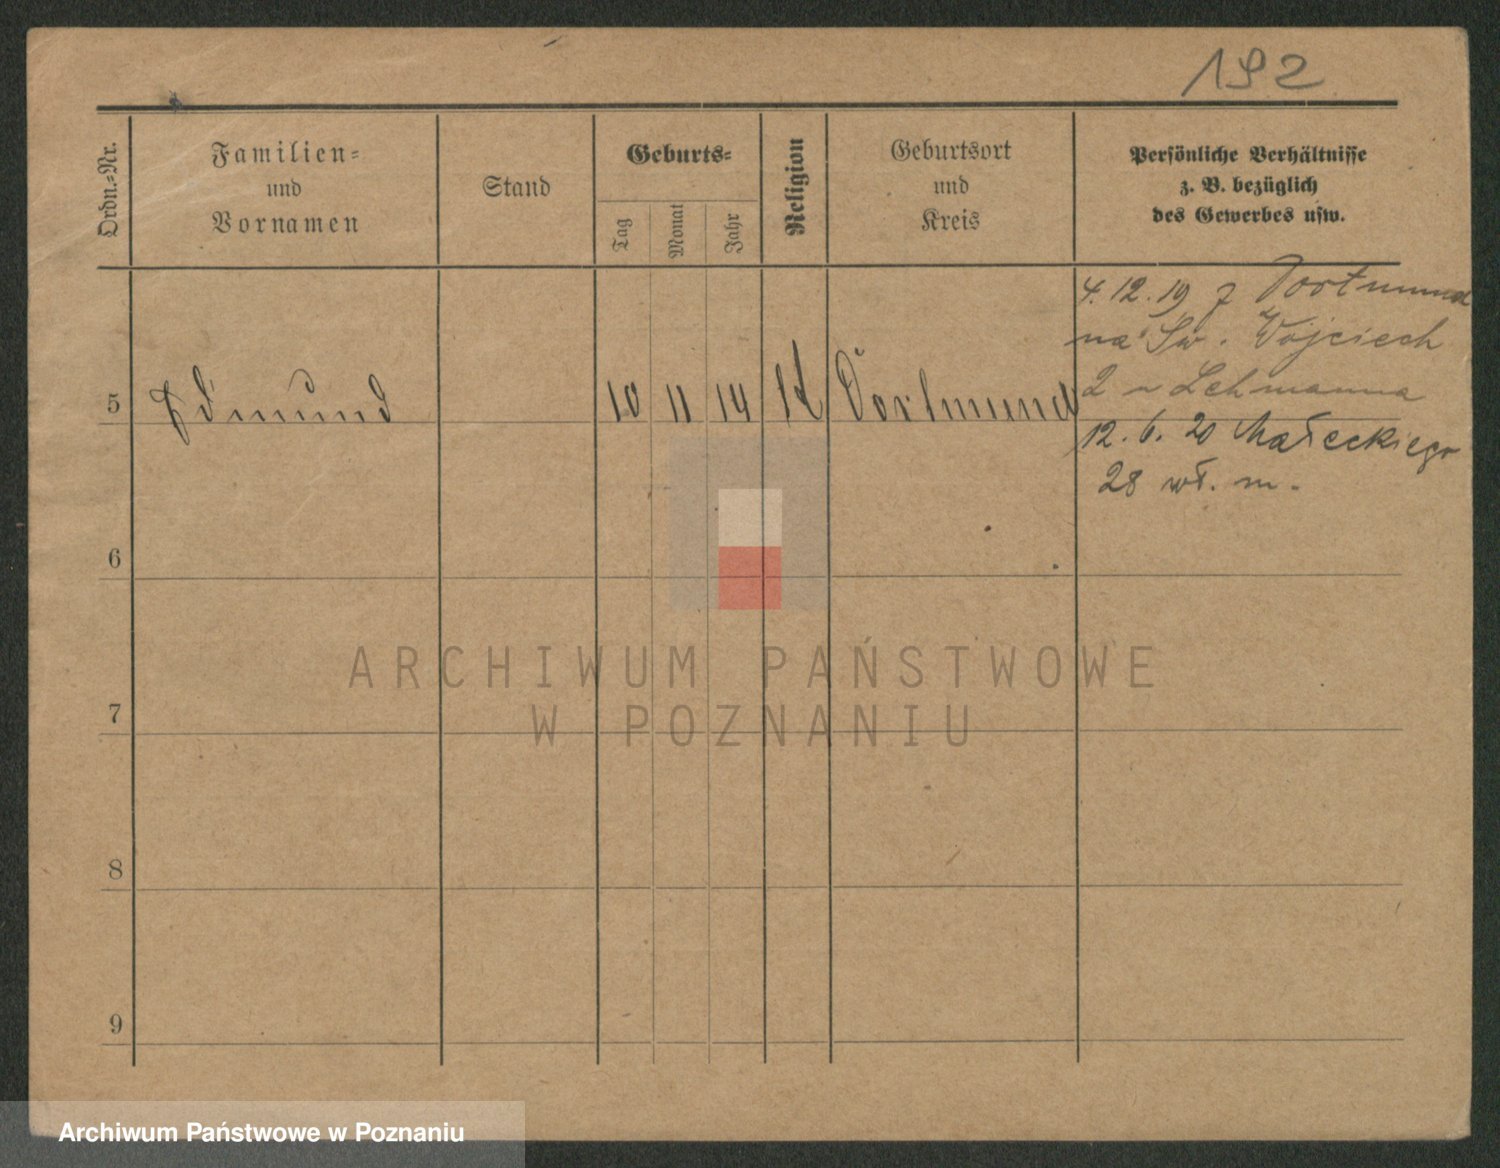 192
Ordn.-Nr.
Familien-
und
Vornamen
Stand
Geburts-
Tag
Monat
Jahr
Religion
Geburtsort
und
Kreis
Persönliche Verhältnisse
z. B. bezüglich
des Gewerbes usw.
4. 12. 19 z Dortmund
na Św. Wojciech
2 u Lehmanna
5 Edmund 10 11 14 Dortmund
12. 6. 20 Małeckiego
28 wł. m.
6
7
8
9
ARCHIWUM PAŃSTWOWE
W POZNANIU
Archiwum Państwowe w Poznaniu